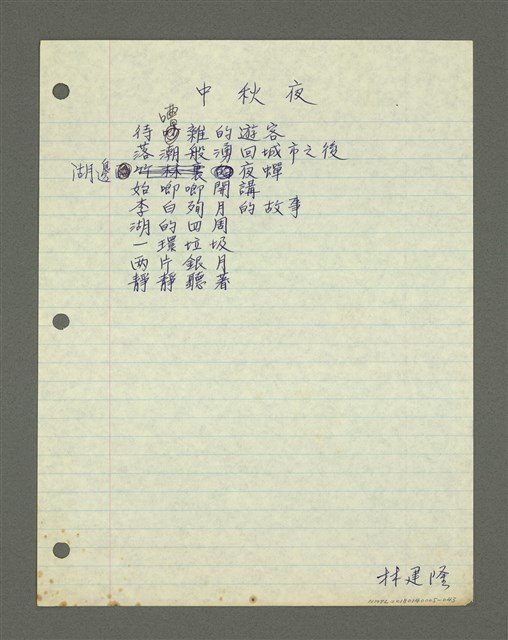 中秋夜
待嘈雜的遊客
落潮般湧回城市之後
湖邊夜蟬
始唧唧開講
李白殉月的故事
湖的四周
一環垃圾
两片銀月
靜靜聽著
林建隆